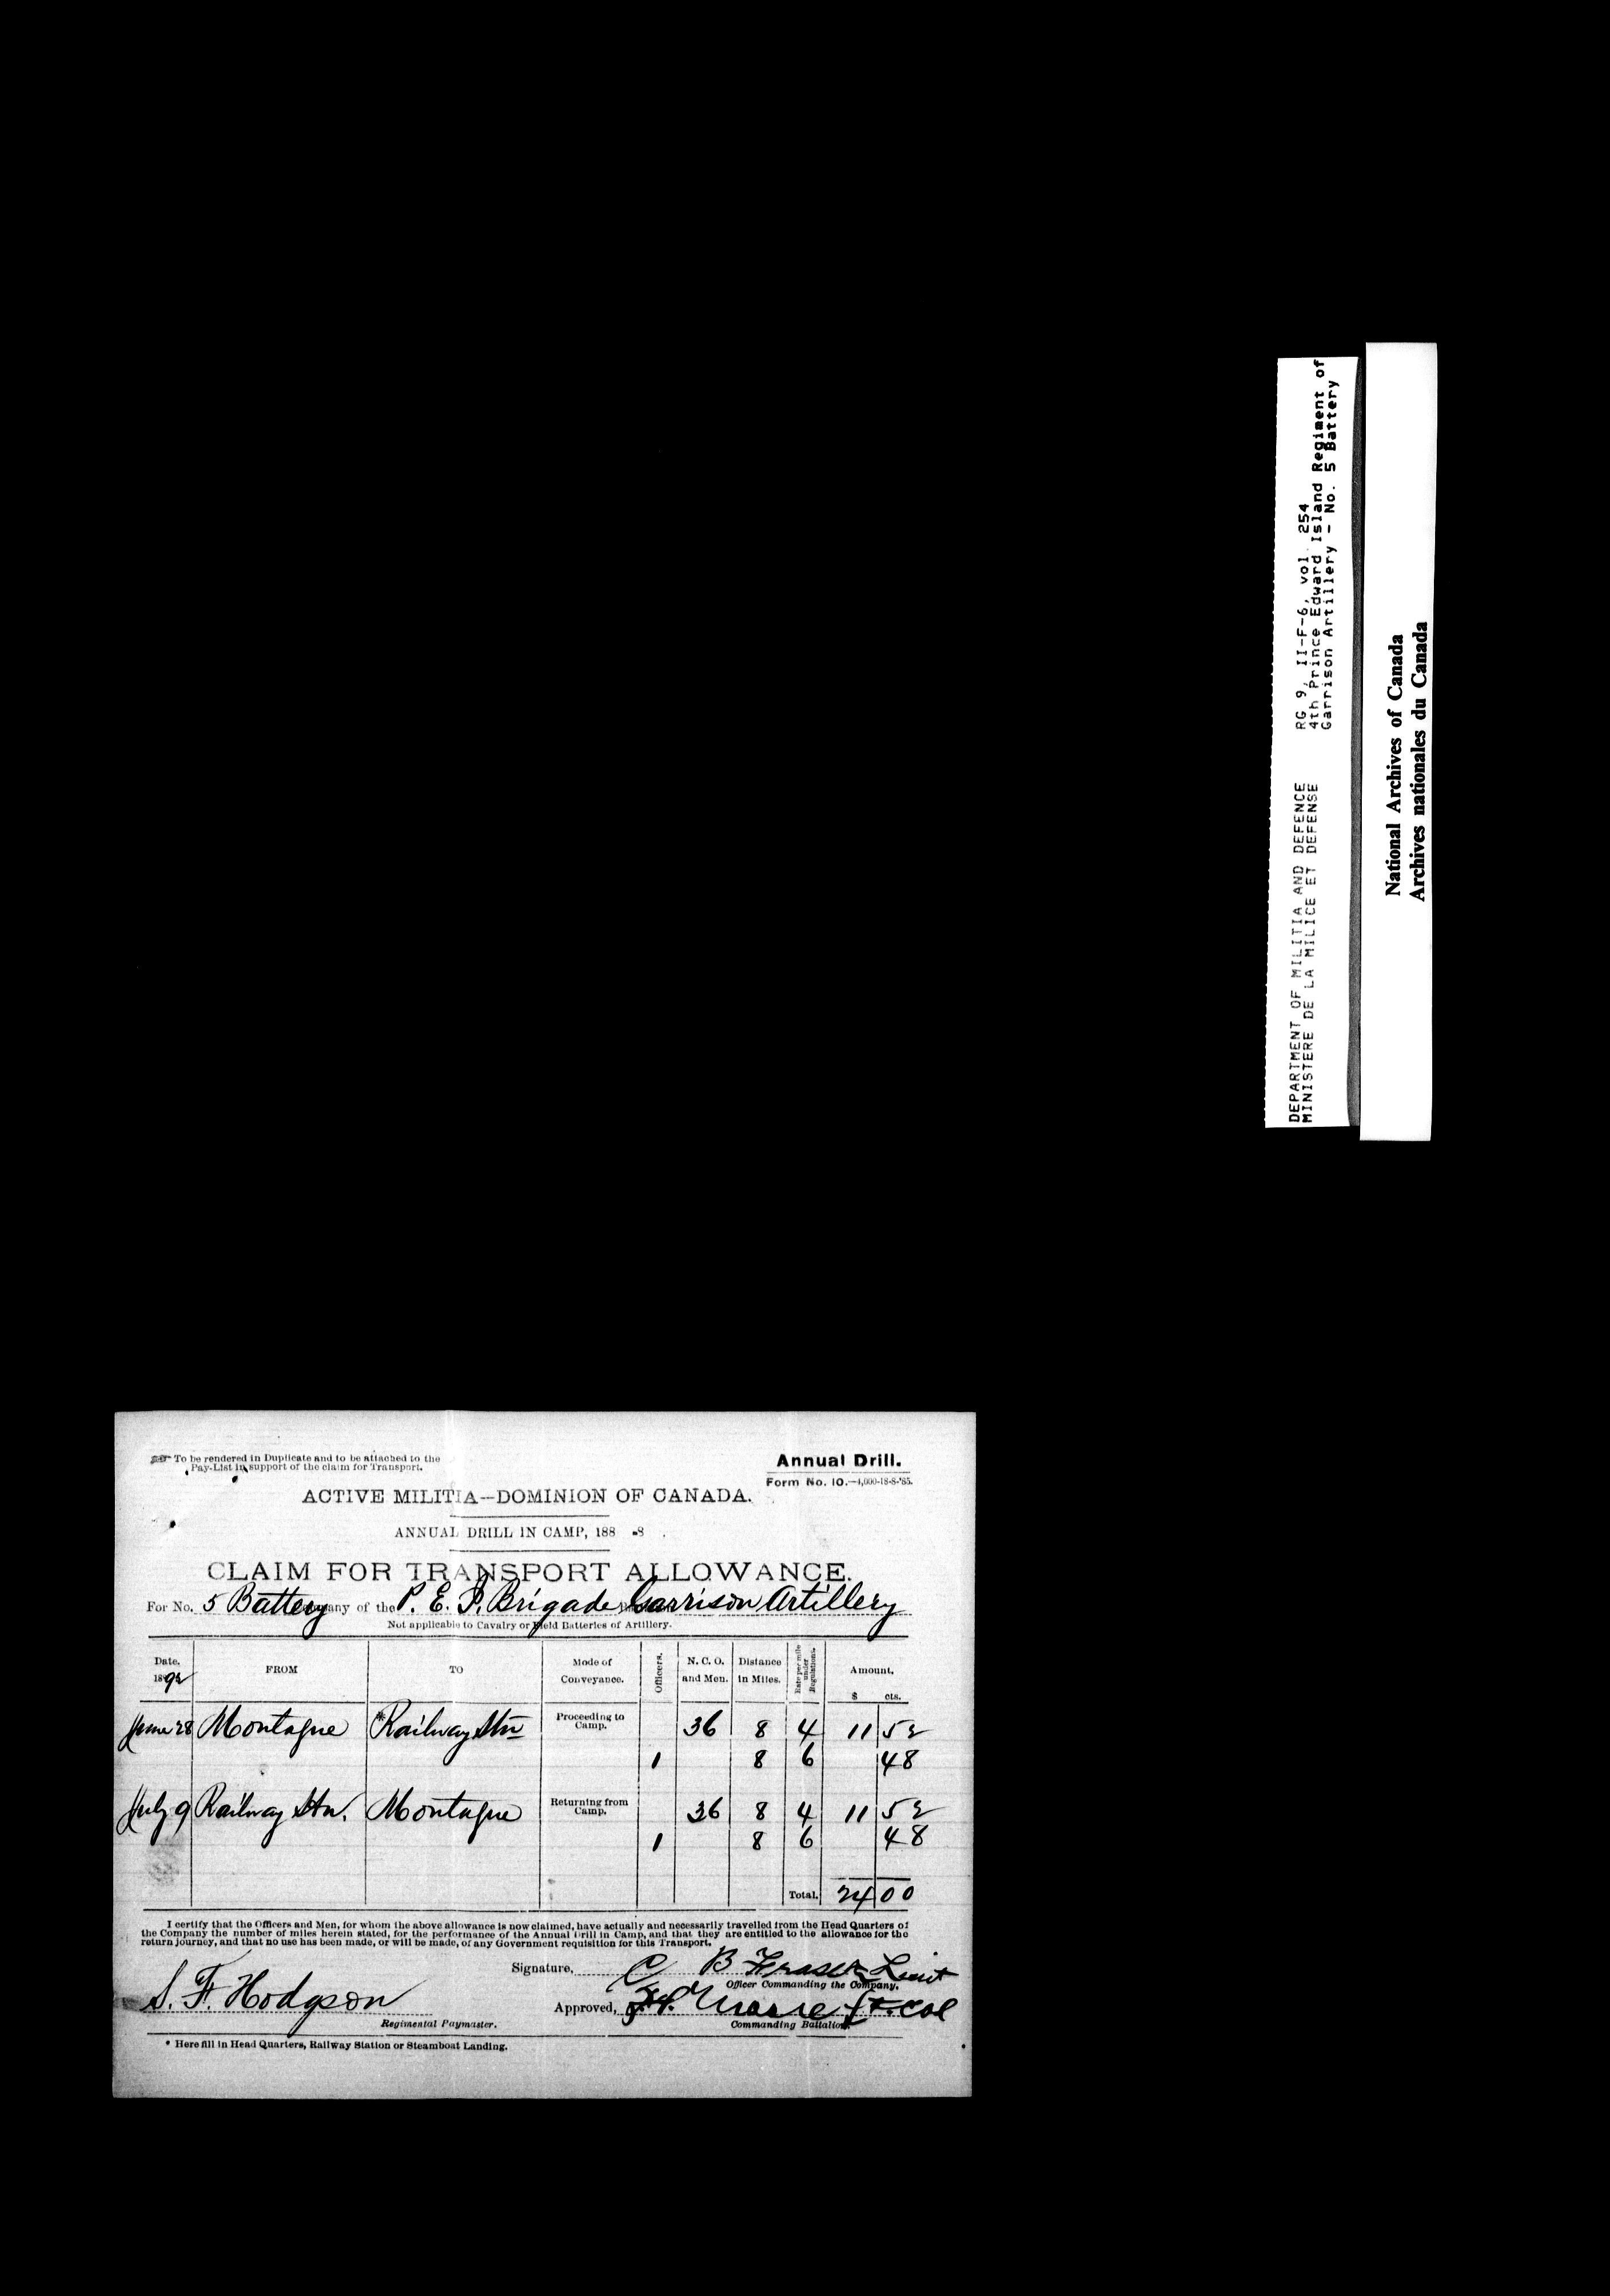 DEPARTMENT OF MILITIA AND DEFENCE
MINISTERE DE LA MILICE ET DEFENSE
RG 9, II-F-6, vol. 254
4th Prince Edward Island Regiment of
Garrison Artillery - No. 5 Battery
National Archives of Canada
Archives nationales du Canada
To be rendered in Duplicate and to be attached to the
Pay-List in support of the claim for Transport.
Annual Drill.
Form No. 10.—4,000-18-8-'85.
ACTIVE MILITIA--DOMINION OF CANADA.
ANNUAL DRILL IN CAMP, 188 -8 .
CLAIM FOR TRANSPORT ALLOWANCE.
For No. 5 Battery of the P. E. I. Brigade Garrison Artillery
Not applicable to Cavalry or Field Batteries of Artillery.
Date. 1892 FROM TO Mode of Conveyance. Officers. N. C. O. and Men. Distance in Miles. Rate per mile under Regulations. Amount. $ cts.
June 28 Montague *Railway Stn Proceeding to Camp. 36 8 4 11 52
1 8 6 48
July 9 Railway Stn. Montague Returning from Camp. 36 8 4 11 52
1 8 6 48
Total. 24 00
I certify that the Officers and Men, for whom the above allowance is now claimed, have actually and necessarily travelled from the Head Quarters of
the Company the number of miles herein stated, for the performance of the Annual Drill in Camp, and that they are entitled to the allowance for the
return journey, and that no use has been made, or will be made, of any Government requisition for this Transport.
Signature, C B Fraser Lieut
Officer Commanding the Company.
S. F. Hodgson
Regimental Paymaster.
Approved, Moore Lt. Col
Commanding Battalion.
* Here fill in Head Quarters, Railway Station or Steamboat Landing.